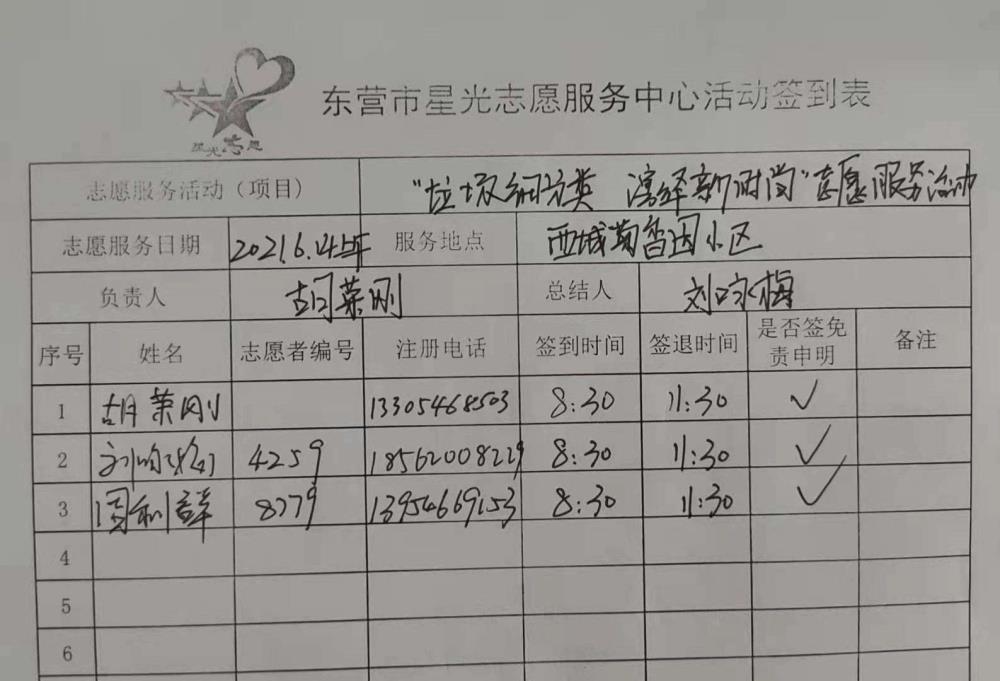 星光志愿
东营市星光志愿服务中心活动签到表
志愿服务活动（项目） "垃圾细分类 演绎新时尚"志愿服务活动
志愿服务日期 2021.6.4上午 服务地点 西城菊香园小区
负责人 胡荣刚 总结人 刘咏梅
序号 姓名 志愿者编号 注册电话 签到时间 签退时间 是否签免责申明 备注
1 胡荣刚 13305468503 8:30 11:30 ✓
2 4259 18562008229 8:30 11:30 ✓
3 周利群 8779 13954669153 8:30 11:30 ✓
4
5
6